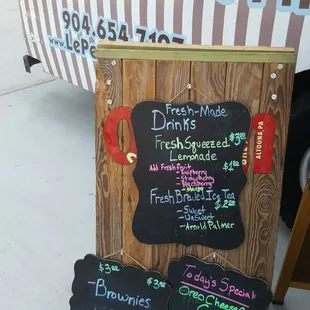 904.654.7197
Fresh-Made
Drinks
Fresh Squeezed $3.00
Lemonade
Add Fresh fruit $4.00
- Raspberry
- Strawberry
- Blackberry
- Mango
Fresh Brewed Ice Tea
$2.00
- Sweet
- UnSweet
- Arnold Palmer
ALTOONA, PA
$3.00 $3.00
- Brownies
Today's Special
Oreo Cheese